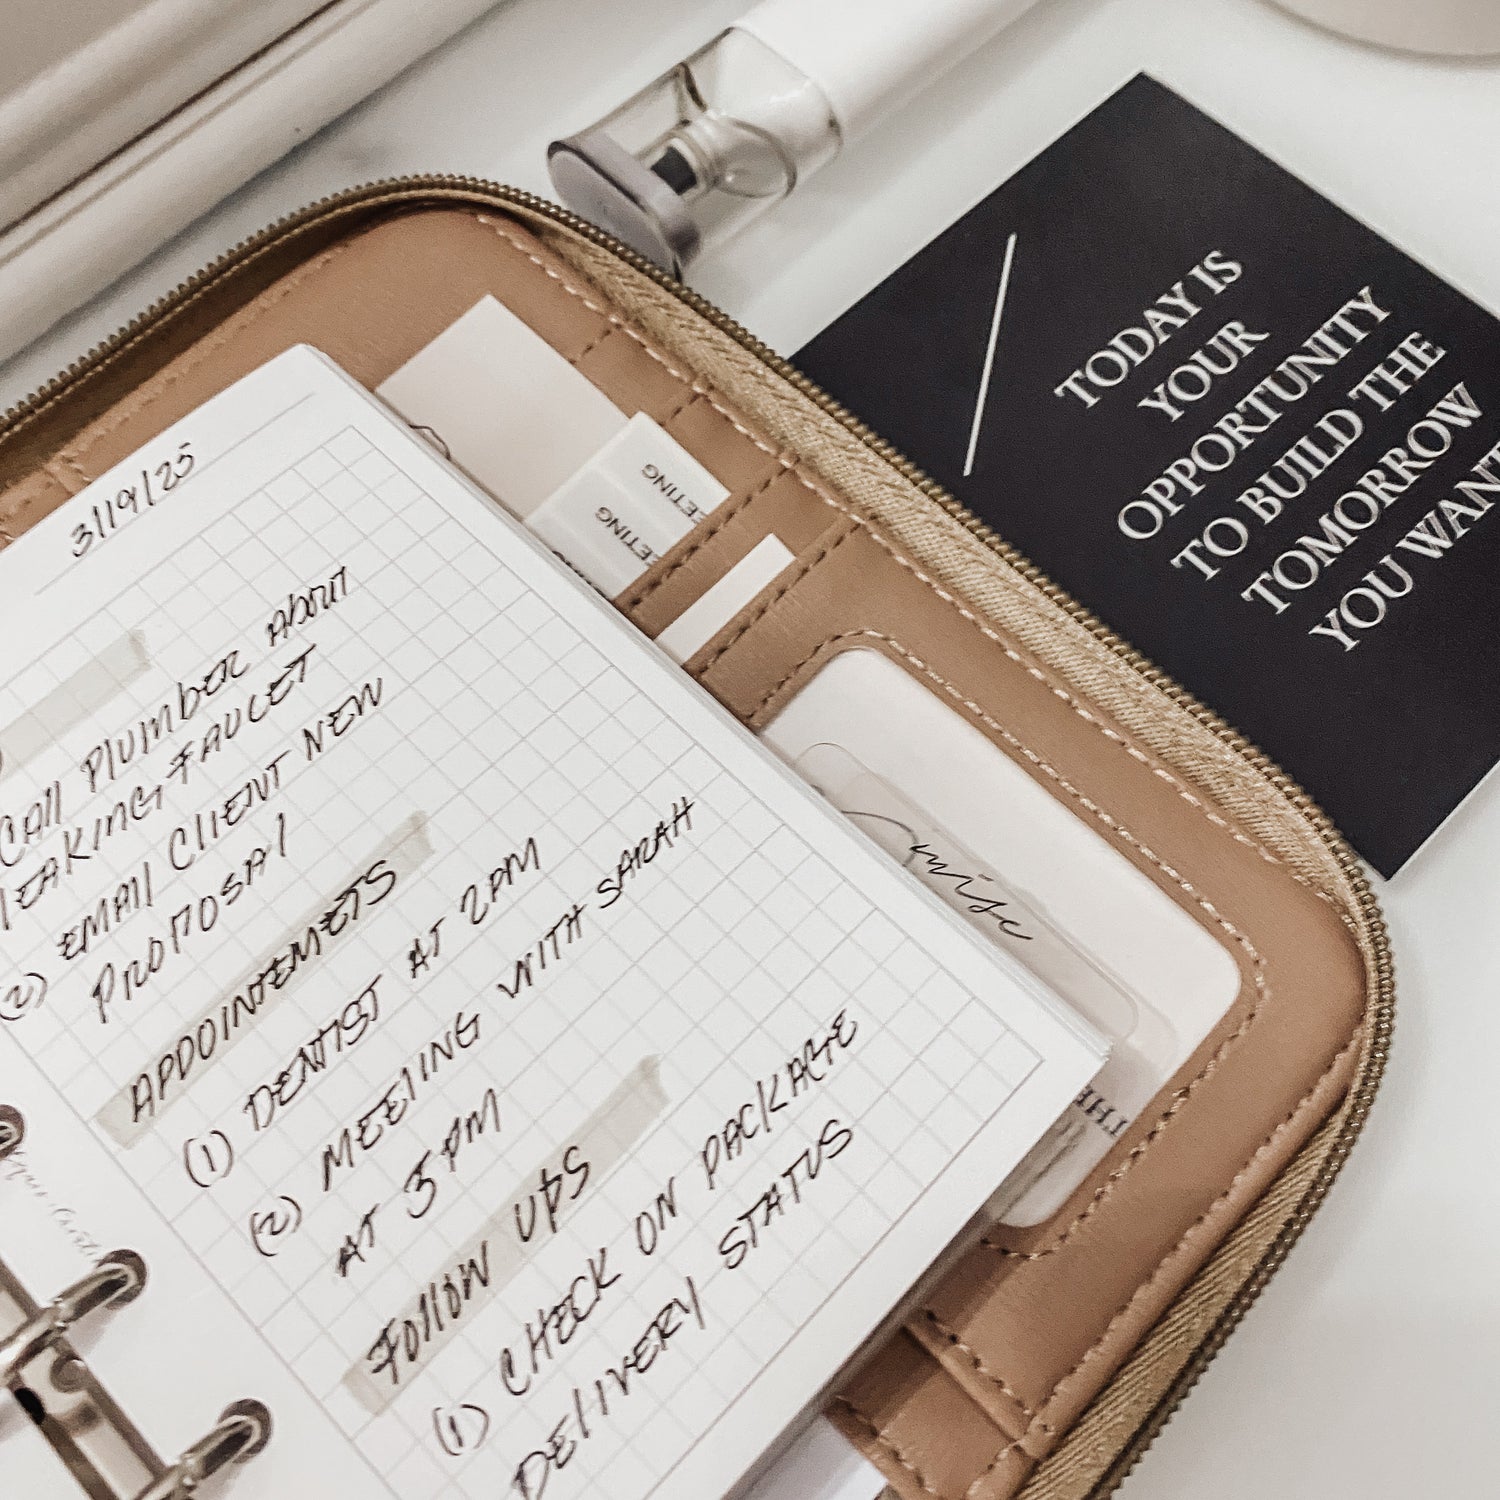 3/19/25
CALL PLUMBER ABOUT
LEAKING FAUCET
(2) EMAIL CLIENT NEW
PROPOSAL
APPOINTEMETS
(1) DENTIST AT 2PM
(2) MEETING WITH SARAH
AT 3PM
FOLLOW UPS
(1) CHECK ON PACKAGE
DELIVERY STATUS
TODAY IS
YOUR
OPPORTUNITY
TO BUILD THE
TOMORROW
YOU WANT
EETING
EETING
THE